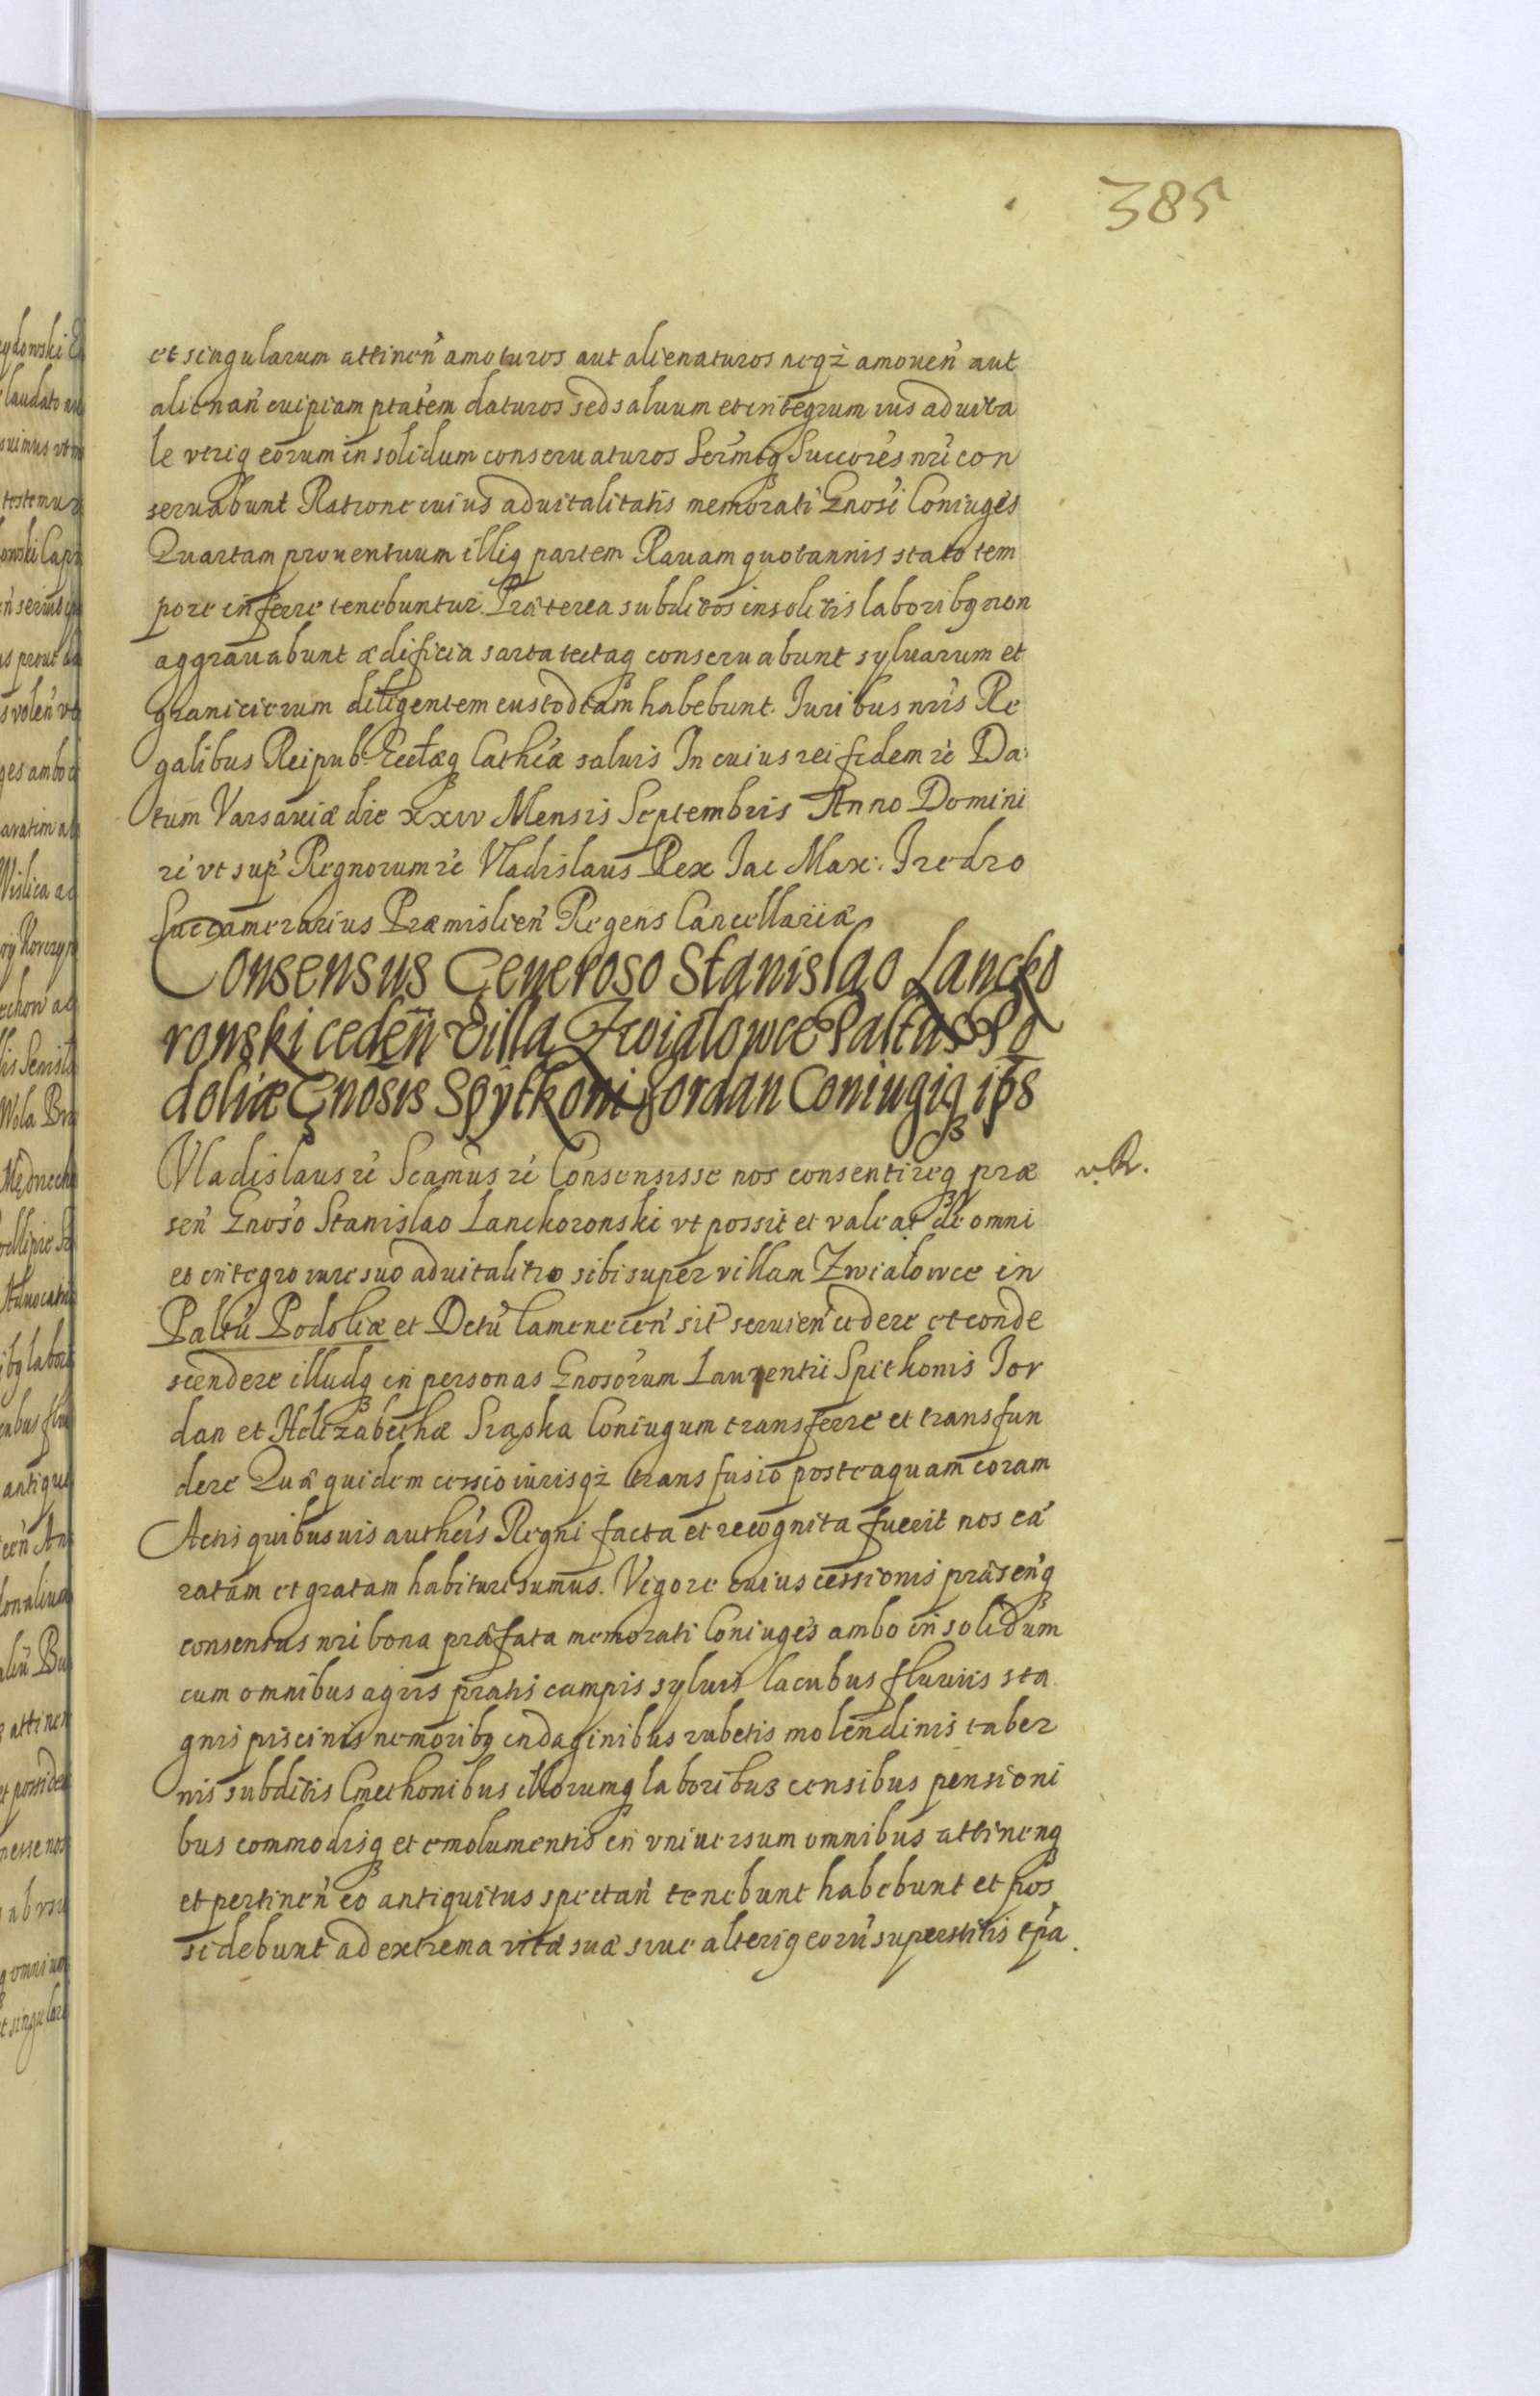 385
et singularum attinen̄ amoturos aut alienaturos neq́ amouen̄ aut
alienan̄ cuipiam ptatem daturos sed saluum et integrum ius aduita
le vtriq eorum in solidum conseruaturos Sermiq Succores nri con
seruabunt Ratione cuius aduitalitatis memorati Gnosi Coniuges
Quartam prouentuum illiq partem Rauam quotannis stato tem
pore inferre tenebuntur. Præterea subditos insolitis laboribq non
aggrauabunt ædificia sarta tectaq conseruabunt syluarum et
granicierum diligentem custodiam habebunt. Iuribus nris Re
galibus Reipub: Ecclæq Cathcæ saluis In cuius rei fidem rc Da:
tum Varsauiæ die xxiv Mensis Septembris Anno Domini
rc vt sup Regnorum rc Vladislaus Rex Iac Max: Fredro
Succamerarius Præmislien̄ Regens Cancellariæ
Consensus Generoso Stanislao Lancko
ronski ceden̄ Villa Zwiałowce Paltus Po
doliæ Gnosis Spÿtkoni Jordan Coniugiq ips
Vladislaus rc Scamus rc Consensisse nos consentireq præ
v. R.
sen̄ Gnoso Stanislao Lanckoronski vt possit et valeat de omni
et integro iure suo aduitalitio sibi super villam Zwiałowce in
Paltu Podoliæ et Dctu Camenecen̄ sit seruien̄ cedere et conde
scendere illudq in personas Gnosorum Laurentii Spitkonis Jor
dan et Helizabethæ Srąska Coniugum transferre et transfun
dere Quæ quidem cessio iurisq́ transfusio posteaquam coram
Actis quibusuis authcis Regni facta et recognita fuerit nos eā
ratam et gratam habituri sumus. Vigore cuius cessionis præsenq
consensus nri bona præfata memorati Coniuges ambo in solidum
cum omnibus agris pratis campis syluis lacubus fluuiis sta
gnis piscinis nemoribq indaginibus rubetis molendinis taber
nis subditis Cmethonibus illorumq laboribus censibus pensioni
bus commodisq et emolumentis in vniuersum omnibus attinenq
et pertinen̄ eo antiquitus spectan̄ tenebunt habebunt et pos
sidebunt ad extrema vitæ suæ siue alteriq eorū superstitis tpa.